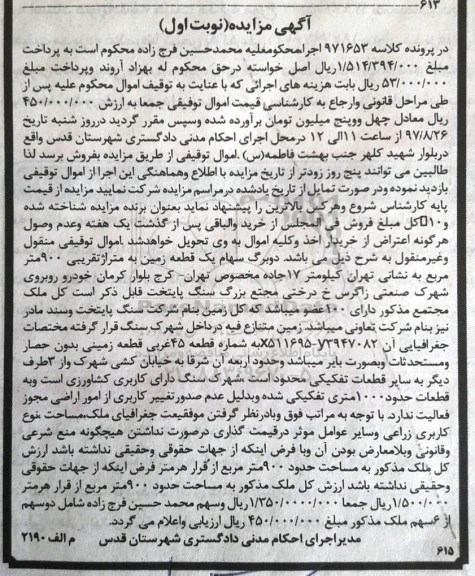 ۶۱۳
آگهی مزایده(نوبت اول)
در پرونده کلاسه ۹۷۱۶۵۳ اجرا محکوم‌علیه محمدحسین فرج زاده محکوم است به پرداخت
مبلغ ۱/۵۱۴/۳۹۴/۰۰۰ ریال اصل خواسته درحق محکوم له بهزاد آروند وپرداخت مبلغ
۵۳/۰۰۰/۰۰۰ ریال بابت هزینه های اجرائی که با عنایت به توقیف اموال محکوم علیه پس از
طی مراحل قانونی وارجاع به کارشناسی قیمت اموال توقیفی جمعا به ارزش ۴۵۰/۰۰۰/۰۰۰
ریال معادل چهل وپنج میلیون تومان برآورده شده وسپس مقرر گردید درروز شنبه تاریخ
۹۷/۸/۲۶ از ساعت ۱۱الی ۱۲ درمحل اجرای احکام مدنی دادگستری شهرستان قدس واقع
دربلوار شهید کلهر جنب بهشت فاطمه(س) .اموال توقیفی از طریق مزایده بفروش برسد لذا
طالبین می توانند پنج روز زودتر از تاریخ مزایده با اطلاع وهماهنگی این اجرا از اموال توقیفی
بازدید نموده ودر صورت تمایل از تاریخ یادشده درمراسم مزایده شرکت نمایید مزایده از قیمت
پایه کارشناس شروع وهر کس بالاترین را پیشنهاد نماید بعنوان برنده مزایده شناخته شده
و۱۰ کل مبلغ فروش فی المجلس از خرید والباقی پس از گذشت یک هفته وعدم وصول
هرگونه اعتراض از خریدار اخذ وکلیه اموال به وی تحویل خواهدشد .اموال توقیفی منقول
وغیرمنقول به شرح ذیل می باشد. دوبرگ سهام یک قطعه زمین به متراژتقریبی ۹۰۰متر
مربع به نشانی تهران کیلومتر ۱۷جاده مخصوص تهران- کرج بلوار کرمان خودرو روبروی
شهرک صنعتی زاگرس خ درختی مجتع بزرگ سنگ پایتخت قابل ذکر است کل ملک
مجتمع مذکور دارای ۱۰۰عضو میباشد که کل زمین بنام شرکت سنگ پایتخت وسند مادر
نیز بنام شرکت تعاونی میباشد. زمین متنازع فیه درداخل شهرک سنگ قرار گرفته مختصات
جغرافیایی آن X۵۱۱۶۹۵-y۳۹۴۷۰۸۲ به شماره قطعه ۴۵غربی قطعه زمینی بدون حصار
ومستحدثات وبصورت بایر میباشد وحدود اربعه آن شرقا به خیابان کشی شهرک واز ۳طرف
دیگر به سایر قطعات تفکیکی محدود است .شهرک سنگ دارای کاربری کشاورزی است وبه
قطعات حدود۱۰۰۰متری تفکیکی شده وبدلیل عدم صدور تغییر کاربری از امور اراضی مجوز
فعالیت ندارد. با توجه به مراتب فوق وبادرنظر گرفتن موقعیت جغرافیای ملک،مساحت ،نوع
کاربری زراعی وسایر عوامل موثر درقیمت گذاری درصورت نداشتن هیچگونه منع شرعی
وقانونی وبلامعارض بودن آن وبا فرض اینکه از جهات حقوقی وحقیقی نداشته باشد ارزش
کل ملک مذکور به مساحت حدود ۹۰۰متر مربع از قرار هرمتر فرض اینکه از جهات حقوقی
وحقیقی نداشته باشد ارزش کل ملک مذکور به مساحت حدود ۹۰۰متر مربع از قرار هرمتر
۱/۵۰۰/۰۰۰ریال جمعا ۱/۳۵۰/۰۰۰۰/۰۰۰ریال وسهم محمد حسین فرج زاده شامل دوسهم
از ۶سهم ملک مذکور مبلغ ۴۵۰/۰۰۰/۰۰۰ ریال ارزیابی واعلام می گردد.
مدیراجرای احکام مدنی دادگستری شهرستان قدس م الف ۲۱۹۰
۶۱۵